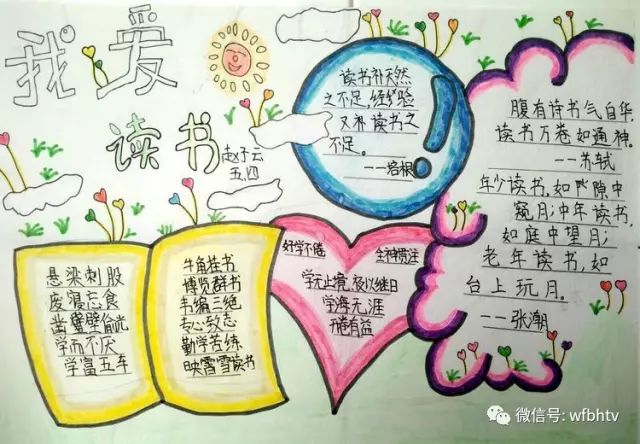 我爱
读书
赵子云
五.四
读书补天然
之不足,经验
又补读书之
不足。
——培根
腹有诗书气自华,
读书万卷如通神.
——苏轼
年少读书,如隙中
窥月;中年读书,
如庭中望月;
老年读书,如
台上玩月.
——张潮
悬梁刺股
废寝忘食
凿壁偷光
学而不厌
学富五车
牛角挂书
博览群书
韦编三绝
专心致志
勤学苦练
映雪读书
好学不倦
全神贯注
学无止境,夜以继日
学海无涯
开卷有益
微信号: wfbhtv